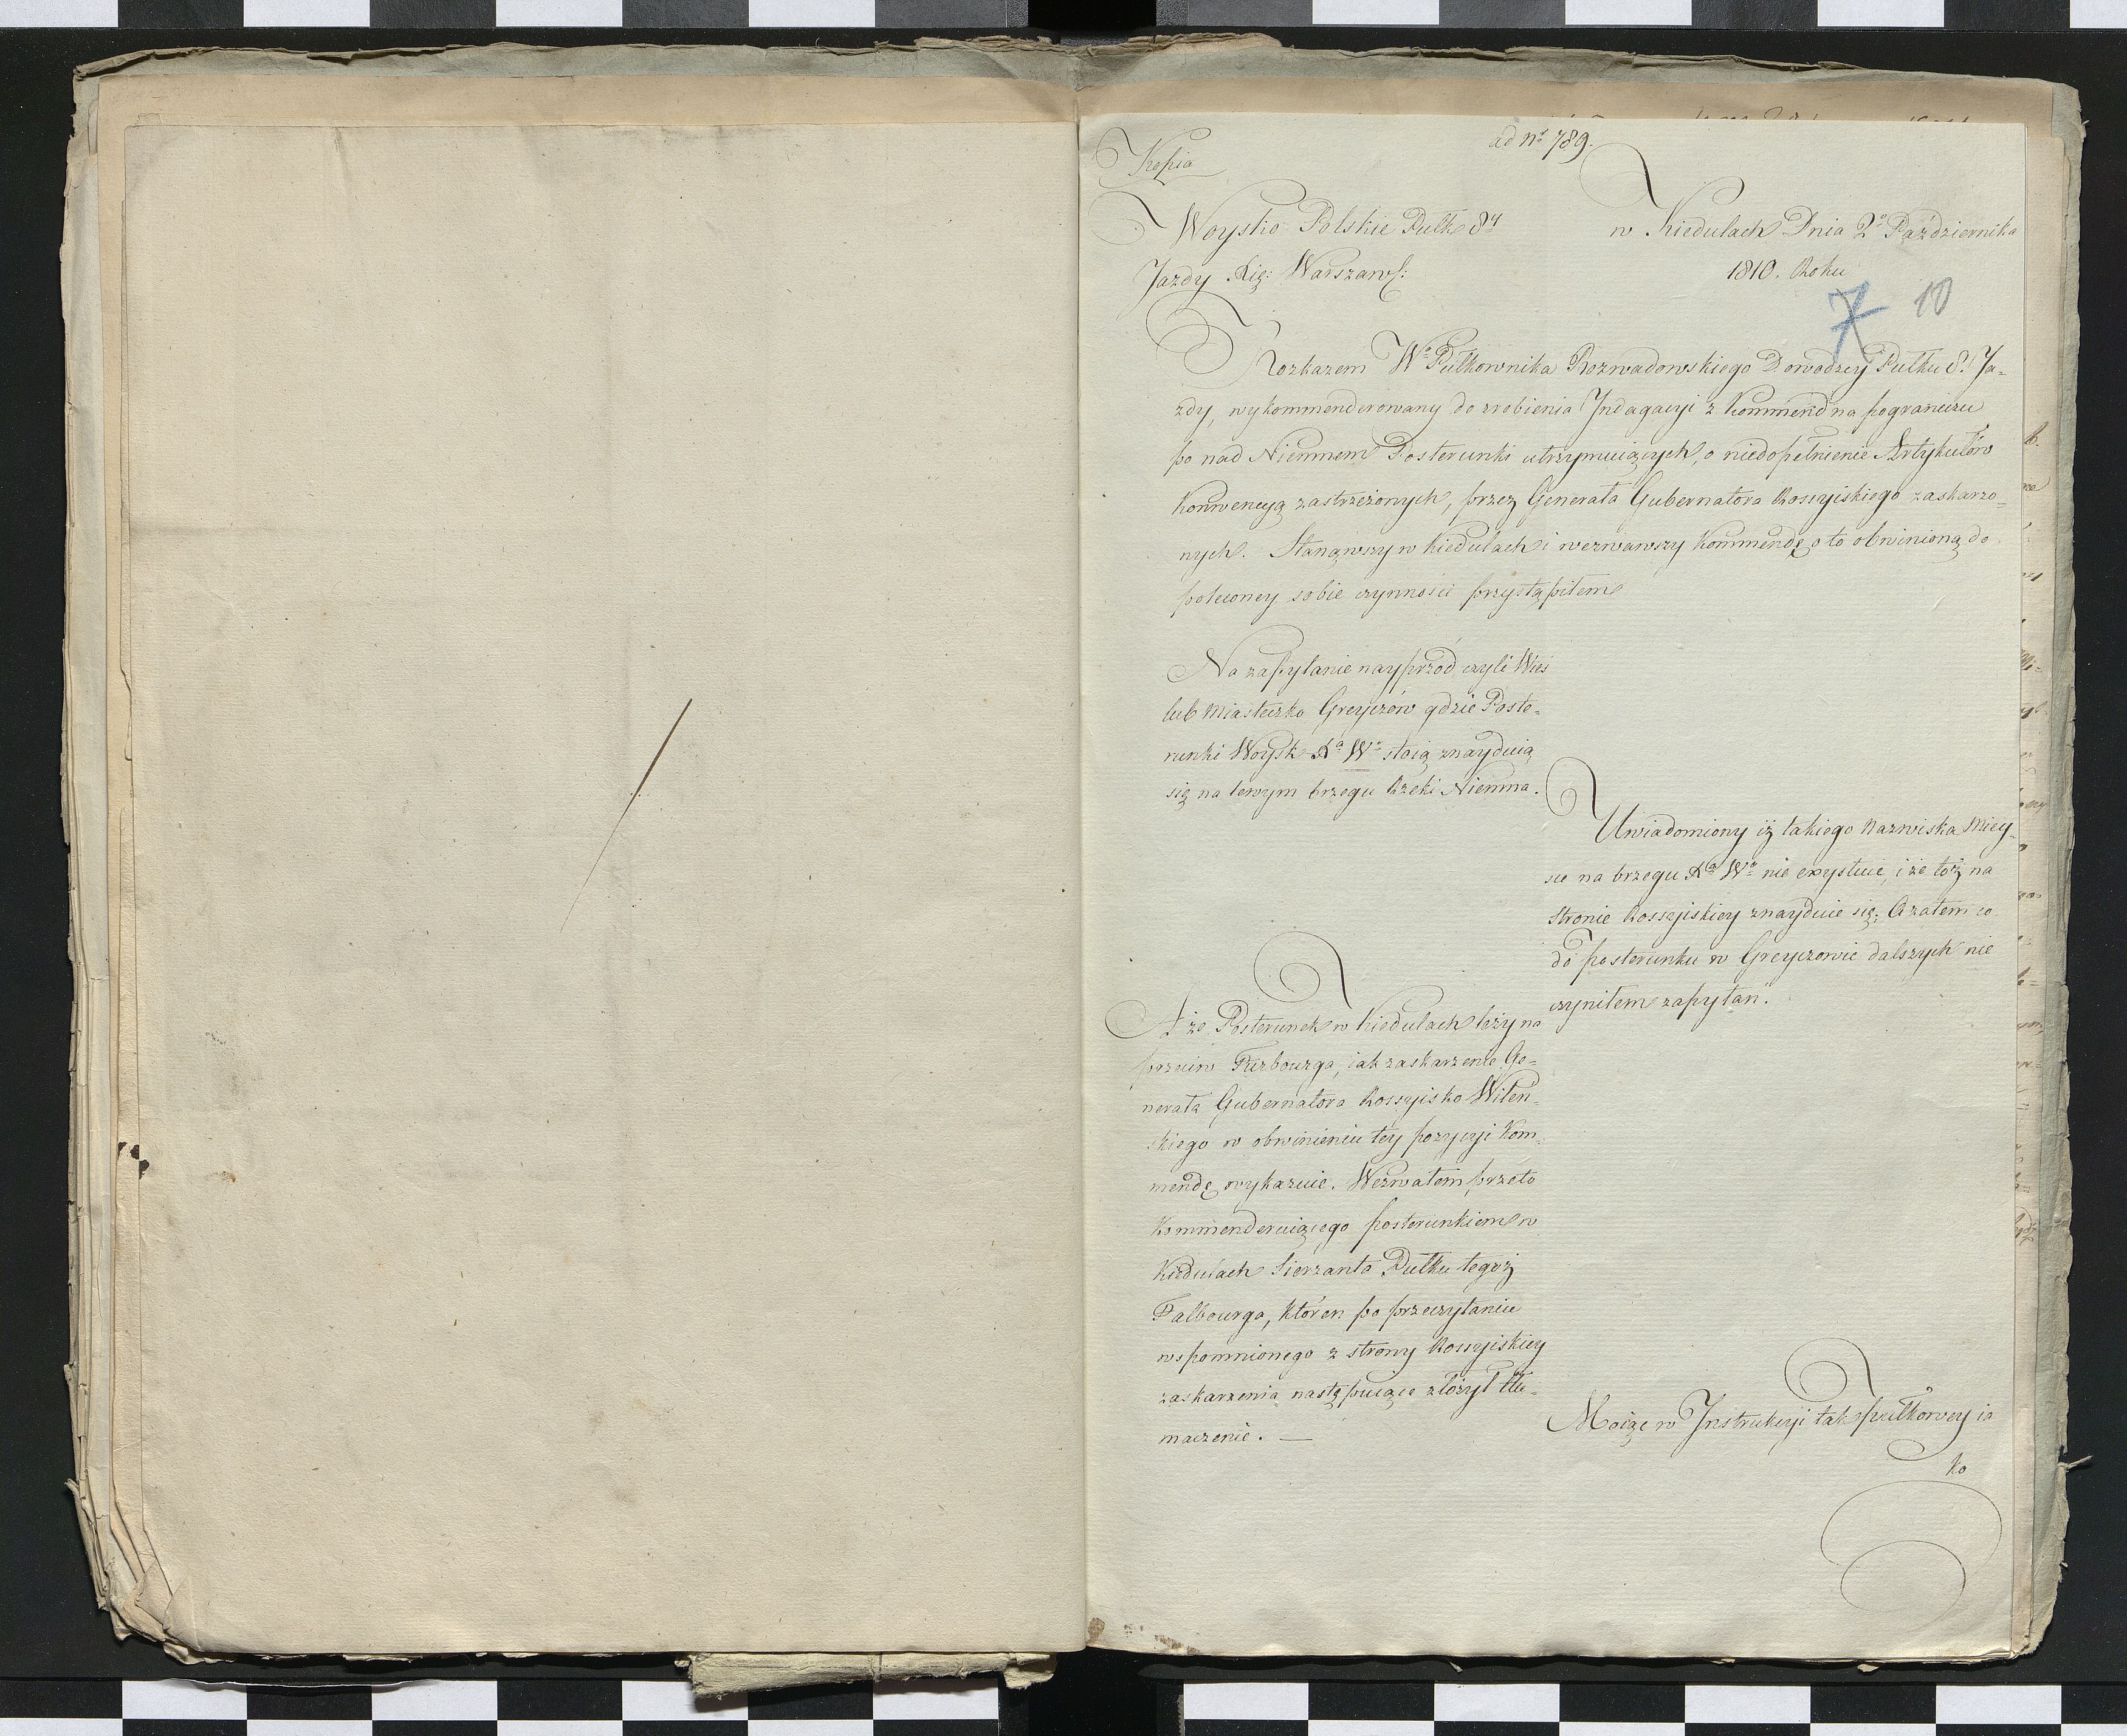 ad nº 789.
Kopia
Woysko Polskie Pułk 8y
Jazdy Xię: Warszaws:
w Kiedulach Dnia 2º Października
1810. Roku
7 10
Rozkazem Wº Pułkownika Rozwadowskiego Dowodzcy Pułku 8. Ja-
zdy, wykommenderowany do zrobienia Indagacyi z Kommend na pograniczu
po nad Niemnem Posterunki utrzymuiących, o niedopełnienie Artykułów
Konwencyą zastrzeżonych, przez Generała Gubernatora Rossyiskiego zaskarzo-
nych. Stanąwszy w Kiedulach i wezwawszy Kommendę o to obwinioną do
poleconey sobie czynności przystąpiłem
Na zapytanie nayprzód, czyli Wieś
lub Miasteczko Greyczów gdzie Poste-
runki Woysk Xa Wo stoią znayduią
się na lewym brzegu Rzeki Niemna.
Uwiadomiony iż takiego Nazwiska Miey-
sce na brzegu Xa Wo nie exystuie, i że toż na
Stronie Rossyiskiey znayduie się; A zatem co
do posterunku w Greyczowie dalszych nie
czyniłem zapytań.
A że Posterunek w Kiedulach leży na
przeciw Jurbourga, iak zaskarzenie Ge-
nerała Gubernatora Rossyisko Wileń-
skiego w obwinieniu tey pozycyi Kom-
mendę wykazuie. Wezwałem przeto
Kommenderuiącego posterunkiem w
Kiedulach Sierzanta Pułku tegoż
Falbourga, któren po przeczytaniu
wspomnionego z strony Rossyiskiey
zaskarzenia następuiące złożył tłu-
maczenie. —
Moiąc w Instrukcyi tak pułkowey ia
ko